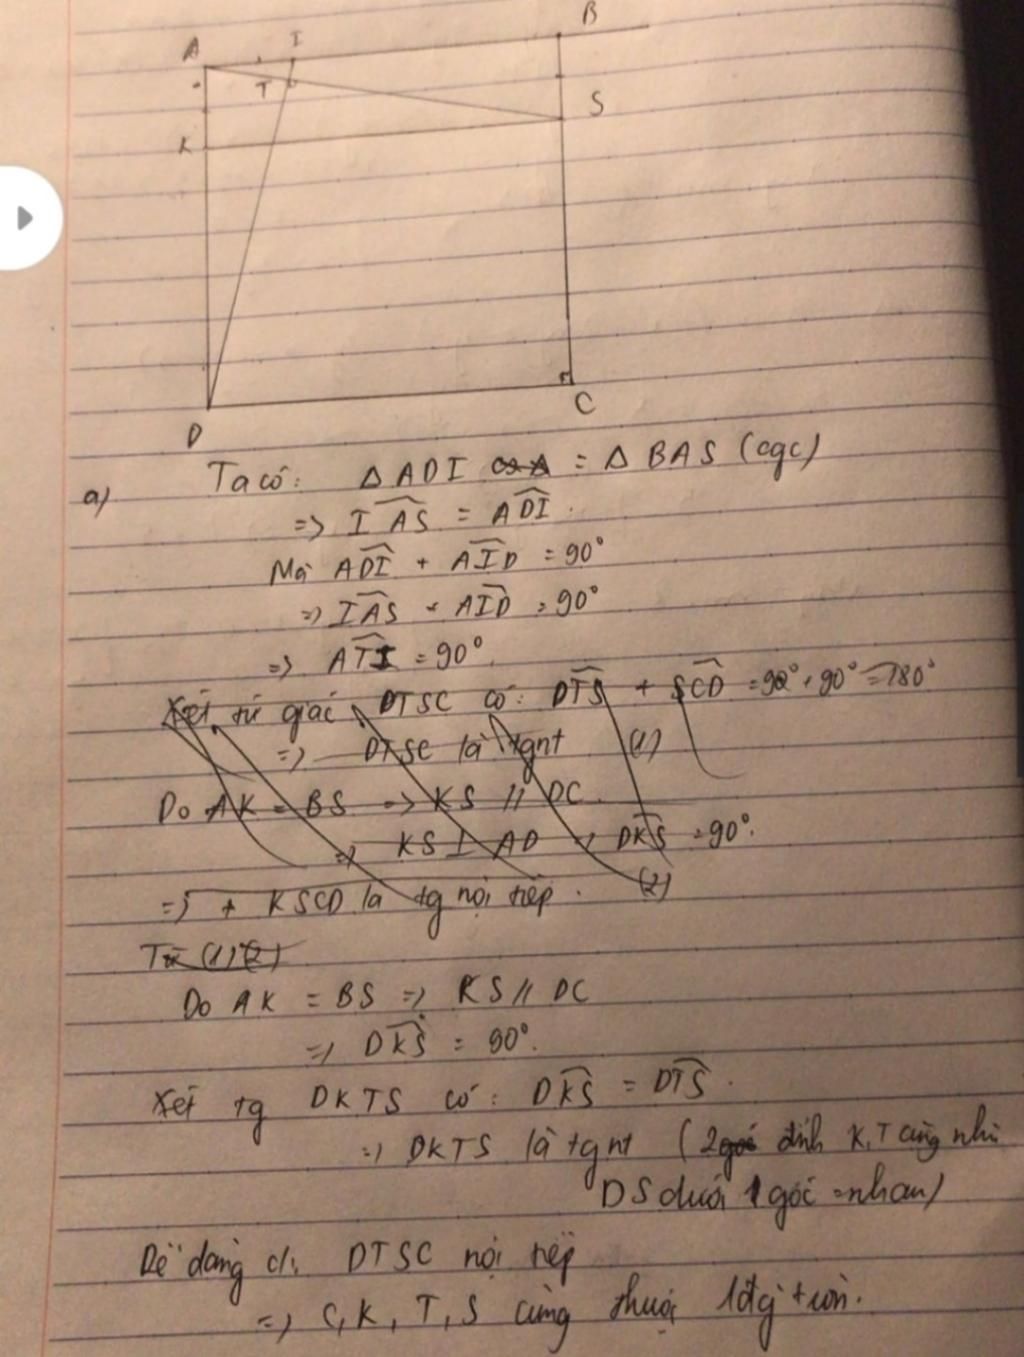 A I B
T S
K
D C
a) Ta có: Δ ADI = Δ BAS (cgc)
=> IAS = ADI.
Mà ADI + AID = 90°
=> IAS + AID = 90°
=> ATI = 90°.
Xét tứ giác DTSC có: DTS + SCD = 90° + 90° = 180°
=> DTSC là tgnt (1)
Do AK = BS => KS // DC.
=> KS ⊥ AD => DKS = 90°.
(2)
=> + KSCD là tg nội tiếp.
Từ (1)(2)
Do AK = BS => KS // DC
=> DKS = 90°.
Xét tg DKTS có: DKS = DTS.
=> DKTS là tgnt (2 góc đỉnh K, T cùng nhìn
DS dưới 1 góc = nhau)
Dễ dàng c/m DTSC nội tiếp
=> C, K, T, S cùng thuộc 1 đg tròn.